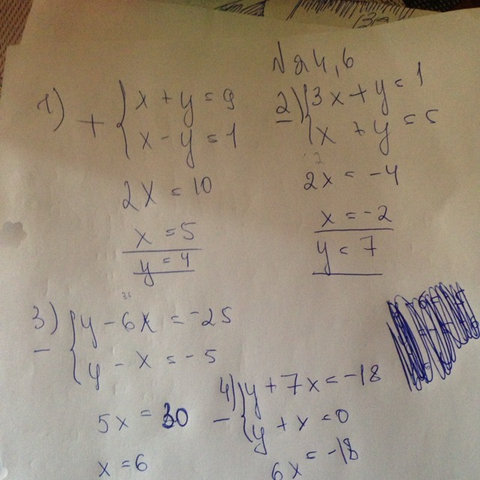 № 24,6
1) + { x + y = 9
x - y = 1
2x = 10
x = 5
y = 4
2) - { 3x + y = 1
x + y = 5
2x = -4
x = -2
y = 7
3) - { y - 6x = -25
y - x = -5
5x = 30
x = 6
4) - { y + 7x = -18
y + x = 0
6x = -18